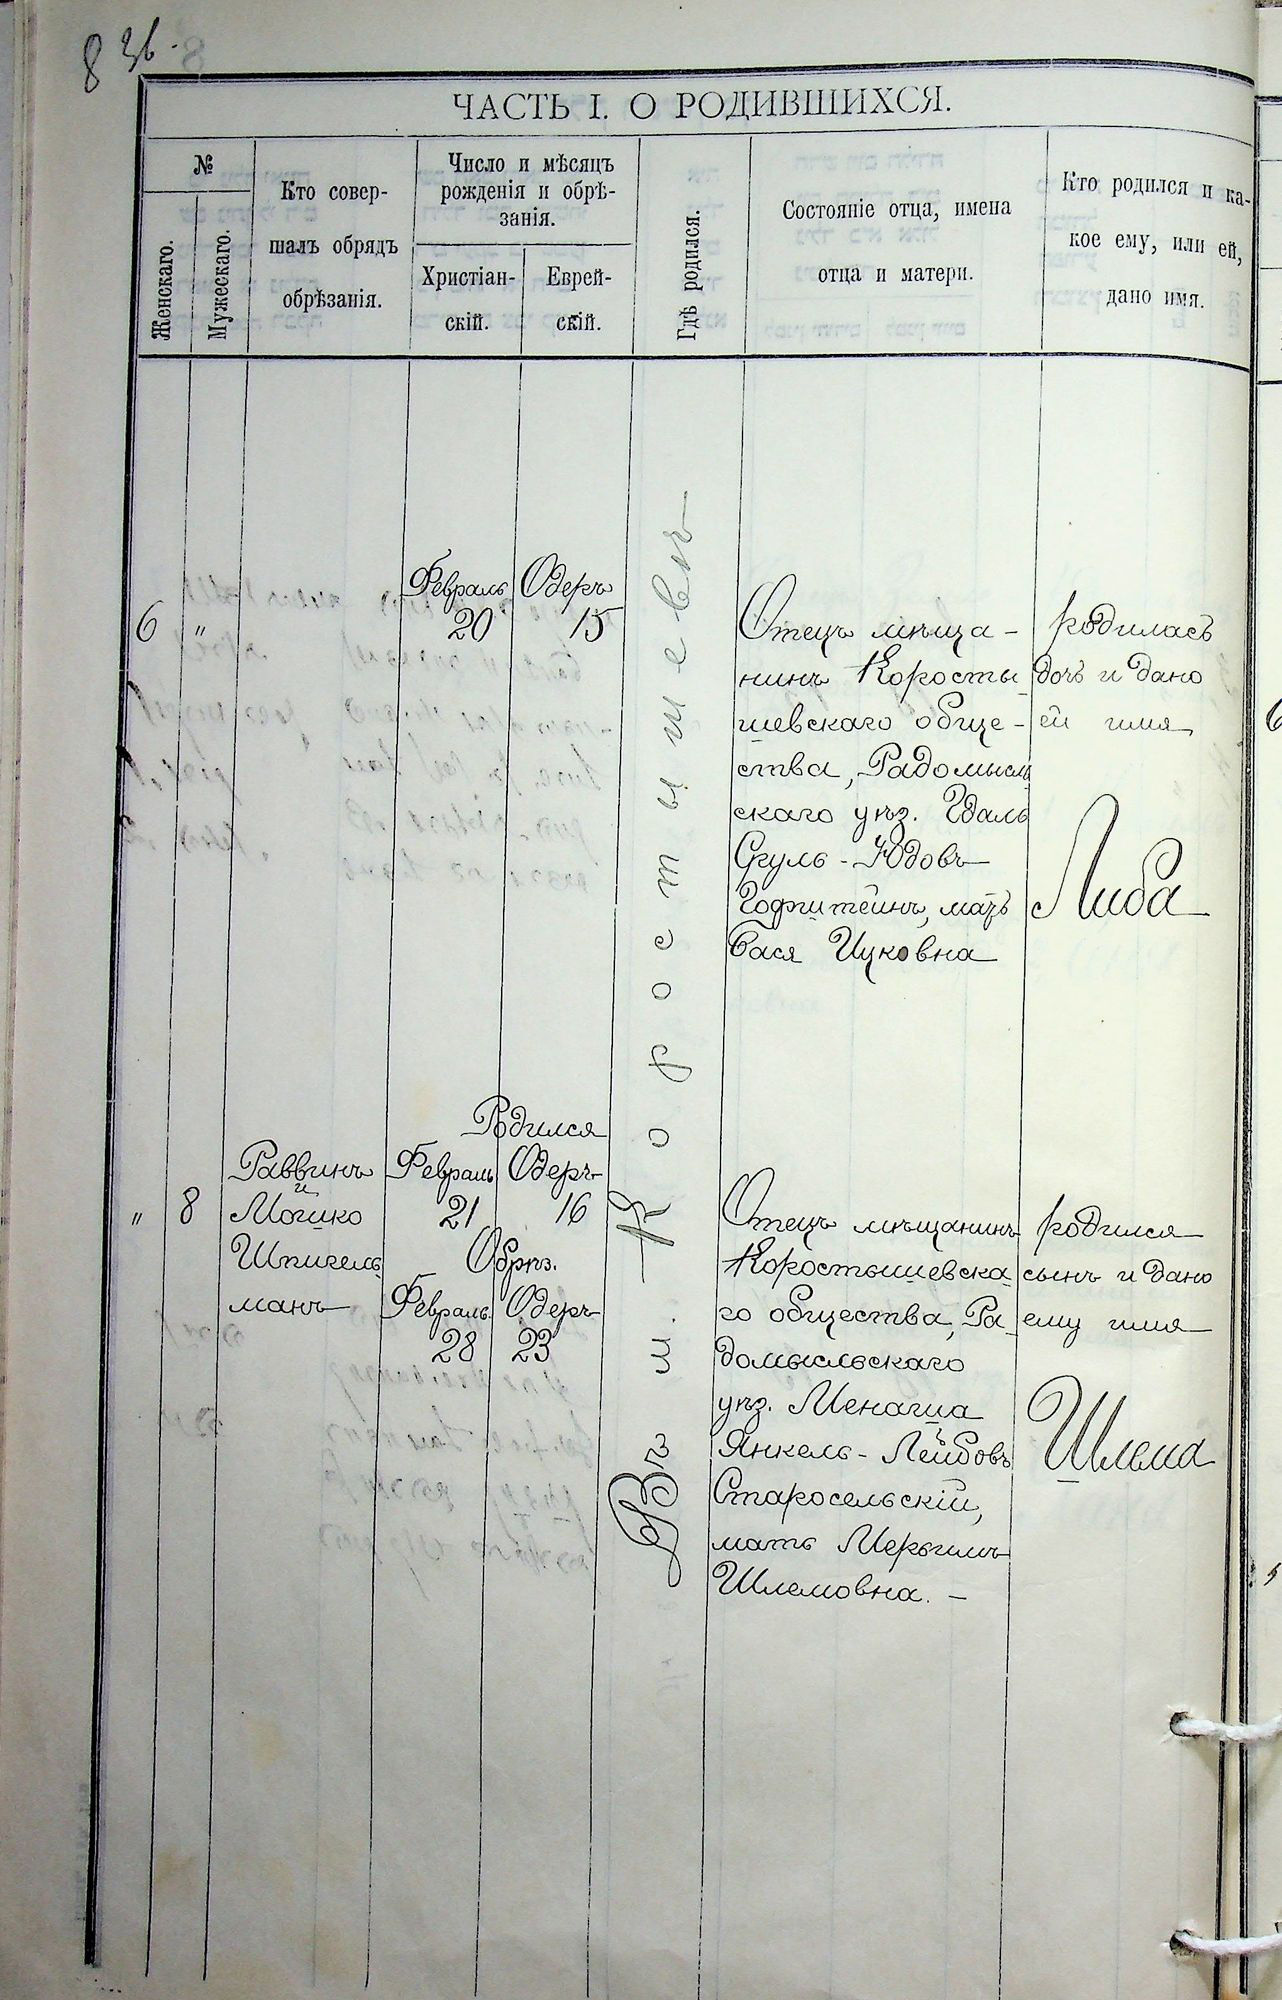 8 зв.
ЧАСТЬ I. О РОДИВШИХСЯ.
№
Женскаго.
Мужескаго.
Кто совер-
шалъ обрядъ
обрѣзанія.
Число и мѣсяцъ
рожденія и обрѣ-
занія.
Христіан-
скій.
Еврей-
скій.
Гдѣ родился.
Состояніе отца, имена
отца и матери.
Кто родился и ка-
кое ему, или ей,
дано имя.
6 "
Февраль Одеръ
20 15
Въ м. Коростышевъ
Отецъ мѣща-
нинъ Коросты
шевскаго обще-
ства, Радомысль
скаго уѣз. Гдаль
Сруль-Юдовъ
Гофштейнъ, мать
Бася Ицковна
родилась
дочь и дано
ей имя
Либа
" 8
Раввинъ
и
Мошко
Шпигель
манъ
Родился
Февраль Одеръ
21 16
Обрѣз.
Февраль Одеръ
28 23
Отецъ мѣщанинъ
Коростышевска
го общества, Ра
домысльскаго
уѣз. Менаша
Янкель-Лейбовъ
Старосельскій,
мать Меръимъ
Шлемовна. -
родился
сынъ и дано
ему имя
Шлема